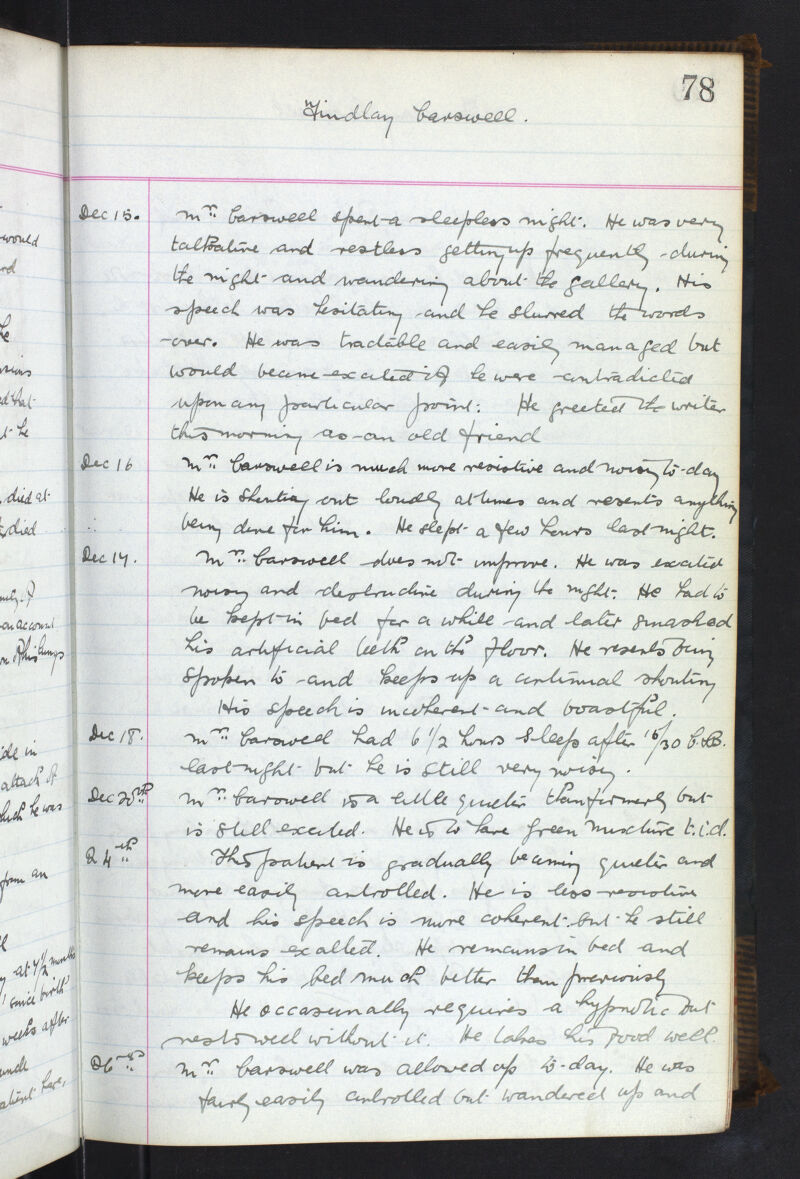 78
Findlay Carswell.
Dec 15. Mr. Carswell spent a sleepless night. He was very
talkative and restless getting up frequently during
the night and wandering about the gallery. His
speech was hesitating and he slurred the words
over. He was tractable and easily managed but
would become excited if he were contradicted
upon any particular point. He greeted the writer
this morning as an old friend
Dec 16 Mr. Carswell is much more resistive and noisy to-day
He is shouting out loudly at times and resents anything
being done for him. He slept a few hours last night.
Dec 17. Mr. Carswell does not improve. He was excited
noisy and destructive during the night. He had to
be kept in bed for a while and later smashed
his artificial teeth on the floor. He resents being
spoken to and keeps up a continual shouting
His speech is incoherent and boastful.
Dec 18. Mr. Carswell had 6 1/2 hours sleep after 15/30 C.B.
last night but he is still very noisy.
Dec 20th Mr. Carswell is a little quieter than formerly but
is still excited. He is to have Green Mixture t.i.d.
24th This patient is gradually becoming quieter and
more easily controlled. He is less resistive
and his speech is more coherent but he still
remains exalted. He remains in bed and
keeps his bed much better than previously
He occasionally requires a hypnotic but
rests well without it. He takes his food well.
26th Mr. Carswell was allowed up to-day. He was
fairly easily controlled but wandered up and
would
he
that
he
died at
died
on account
his lungs
in
attack of
which he was
from an
at 4 1/2 months
since birth
weeks after
patient here,